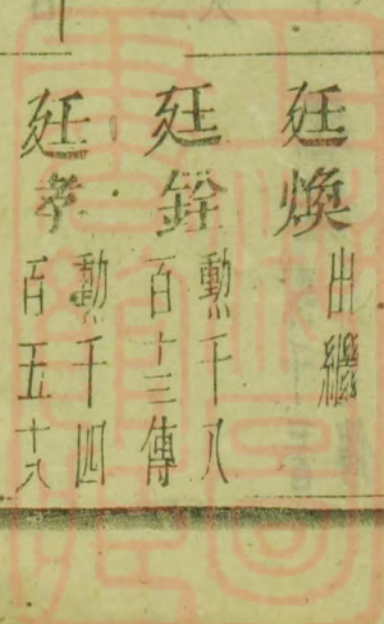 廷煥出繼
廷銓勳千八百十三傳
廷孝勳千四百五十六